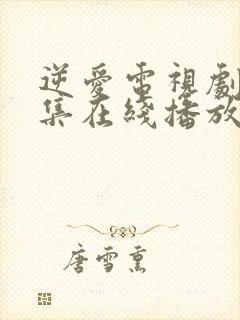 逆愛電視劇
集在綫播放
唐雪熏